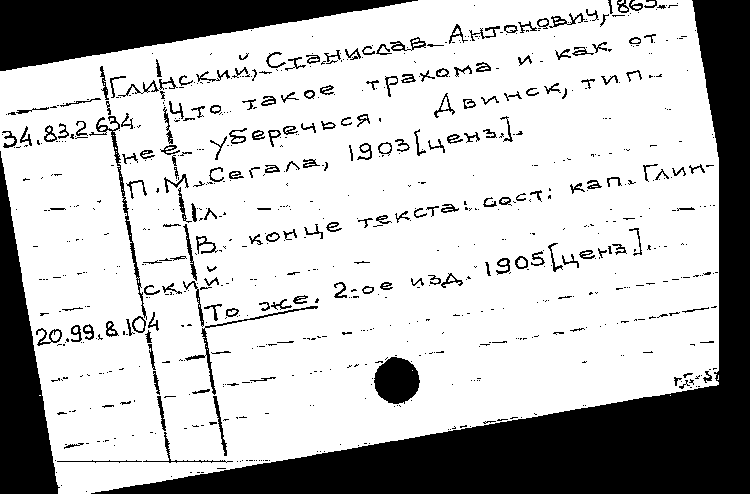 Глинский, Станислав Антонович, 1865-
34.83.2.634 Что такое трахома и как от
нее уберечься. Двинск, тип.
П.М.Сегала, 1903[ценз.].
1л.
В конце текста: сост: кап. Глин-
ский.
20.99.8.104 То же. 2-ое изд. 1905[ценз].